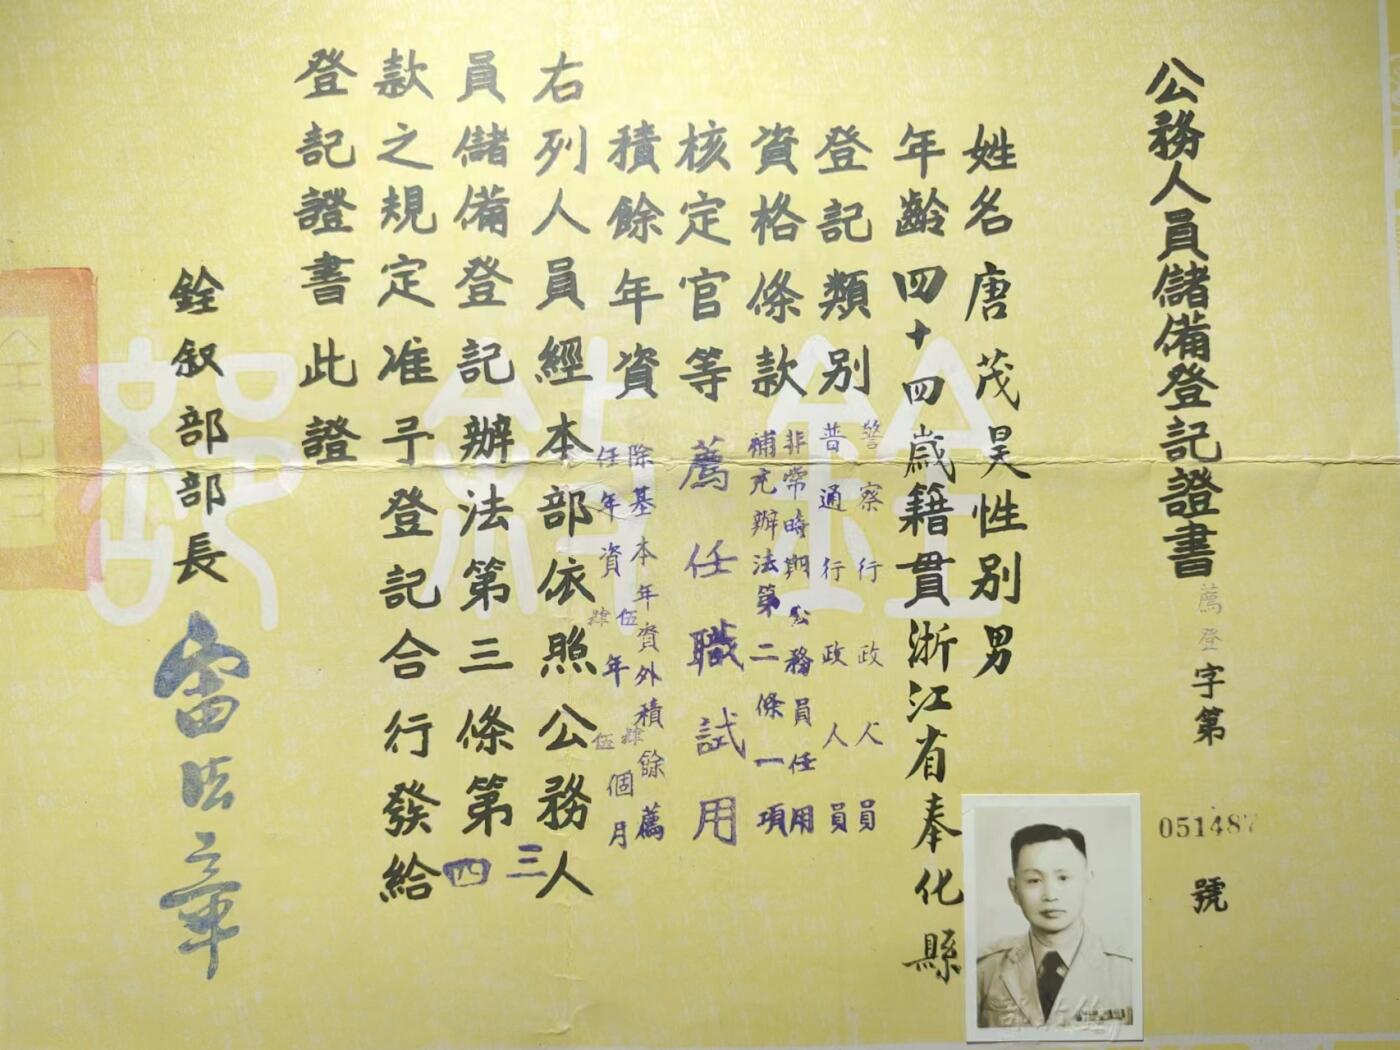 公務人員儲備登記證書
薦登字第051487號
姓名唐茂昊性別男
年齡四十四歲籍貫浙江省奉化縣
登記類別
警察行政人員
普通行政人員
資格條款
非常時期公務員任用
補充辦法第二條一項
核定官等薦任職試用
積餘年資
除基本年資外積餘薦
任年資肆年伍個月
右列人員經本部依照公務人
員儲備登記辦法第三條第三四
款之規定准予登記合行發給
登記證書此證
銓叙部部長雷法章
銓叙部